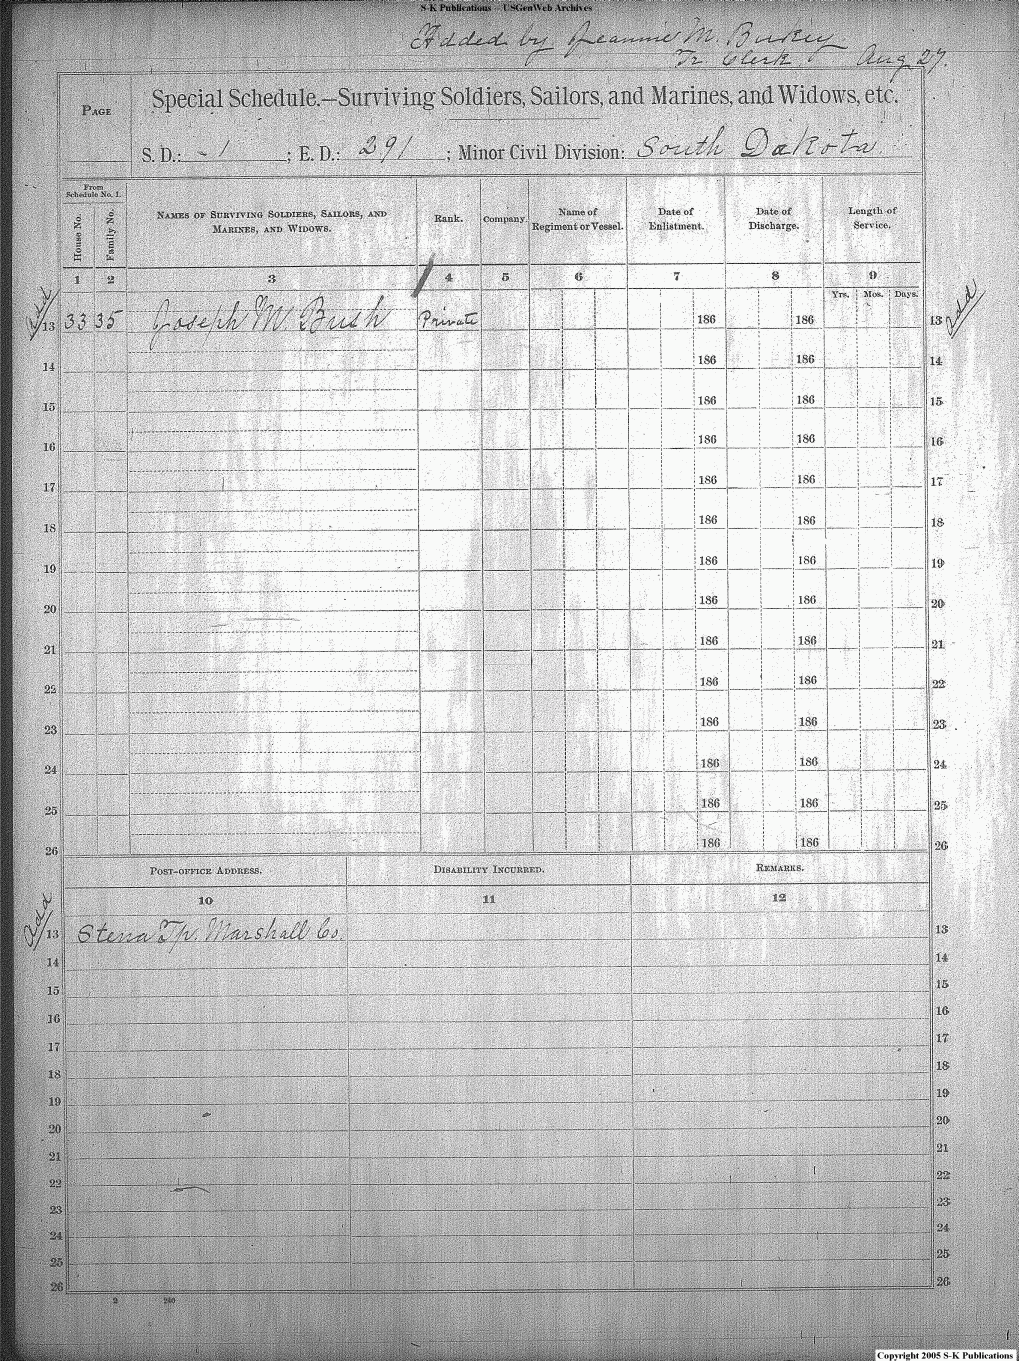 S-K Publications - USGenWeb Archives
Added by Jeannie M. Burkey
Tr Clerk Aug 27.
PAGE
Special Schedule.—Surviving Soldiers, Sailors, and Marines, and Widows, etc.
S. D.: 1 ; E. D.: 291 ; Minor Civil Division: South Dakota
From Schedule No. 1.
House No. Family No.
NAMES OF SURVIVING SOLDIERS, SAILORS, AND MARINES, AND WIDOWS.
Rank. Company. Name of Regiment or Vessel. Date of Enlistment. Date of Discharge. Length of Service.
1 2 3 4 5 6 7 8 9
Yrs. Mos. Days.
Add 13 33 35 Joseph M Bush Private 186 186 13 Add
14 186 186 14
15 186 186 15
16 186 186 16
17 186 186 17
18 186 186 18
19 186 186 19
20 186 186 20
21 186 186 21
22 186 186 22
23 186 186 23
24 186 186 24
25 186 186 25
26 186 186 26
POST-OFFICE ADDRESS. DISABILITY INCURRED. REMARKS.
10 11 12
Add 13 Stena Tp. Marshall Co. 13
14 14
15 15
16 16
17 17
18 18
19 19
20 20
21 21
22 22
23 23
24 24
25 25
26 26
Copyright 2005 S-K Publications